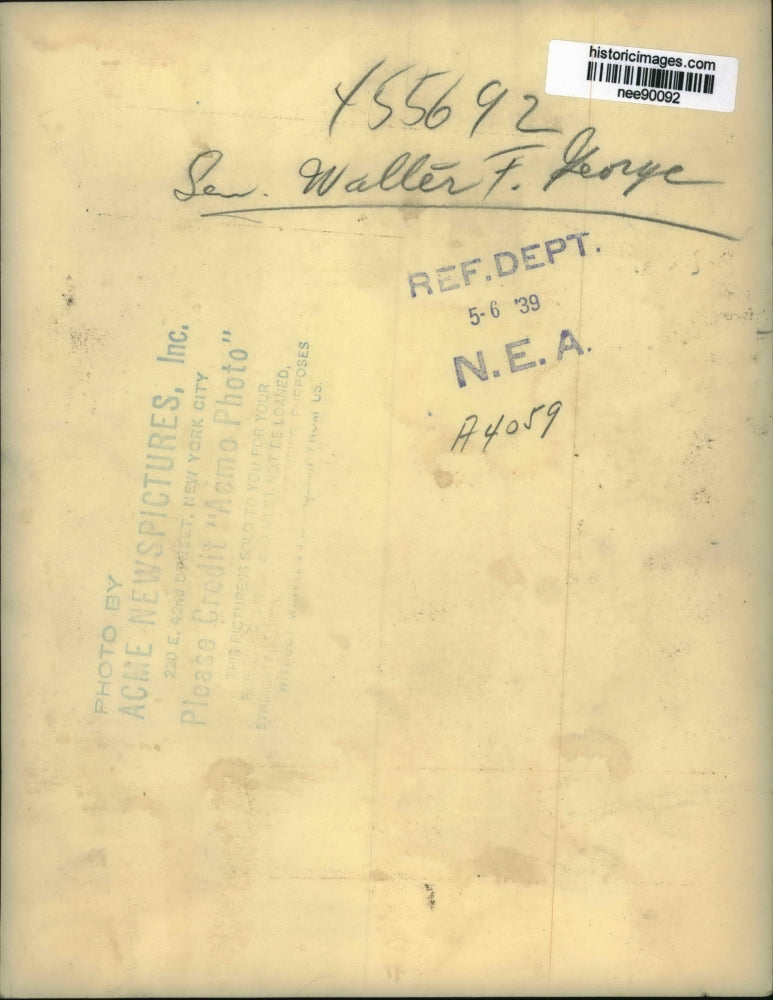 historicimages.com
nee90092
455692
Sen. Walter F. George
REF. DEPT.
5-6 '39
N.E.A.
A4059
PHOTO BY
ACME NEWSPICTURES, Inc.
220 E. 42nd STREET, NEW YORK CITY
Please Credit "Acme Photo"
THIS PICTURE IS SOLD TO YOU FOR YOUR
NOT BE LOANED,
PURPOSES
FROM US.